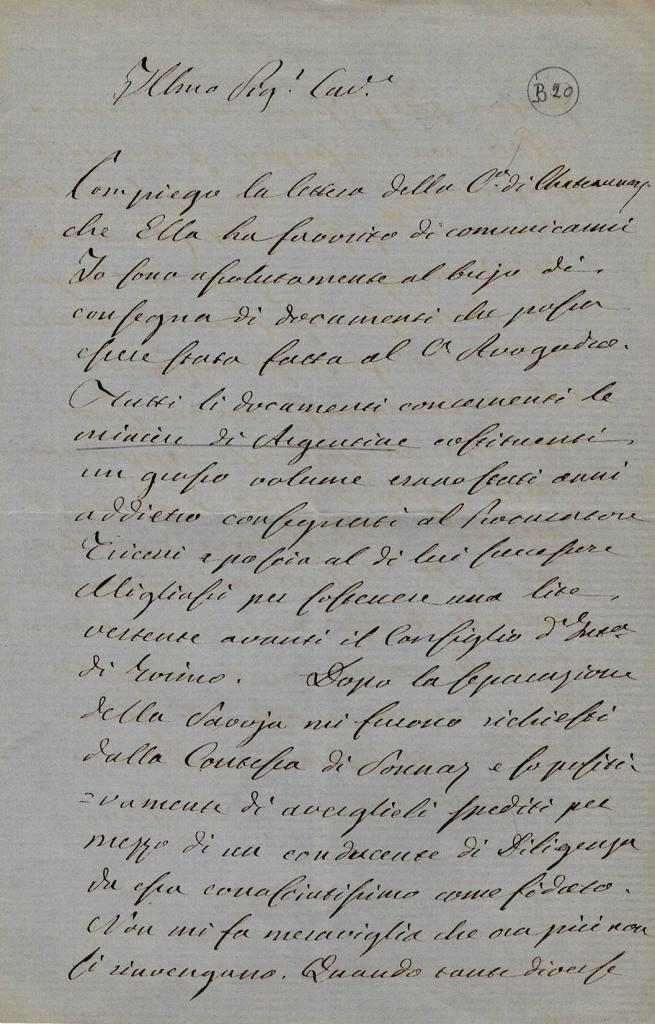 Illmo Sig.r Cav.e
B 20
Compiego la lettera della C.sa di
che Ella ha favorito di comunicarmi
Io sono assolutamente al bujo di
consegna di documenti che possa
essere stata fatta al C.e Avogadro.
Tutti li documenti concernenti le
miniere di Argentine costituenti
un grosso volume erano stati anni
addietro consegnati al Procuratore
e poscia al di lui successore
Migliassi per sostenere una lite
vertente avanti il Consiglio d'
di Torino. Dopo la separazione
della Savoja mi furono richiesti
dalla Contessa di Sonnaz e so positi
=vamente di averglieli spediti per
mezzo di un conducente di Diligenza
da essa conosciutissimo come fidato.
Non mi fa meraviglia che ora più non
si rinvengano. Quando tante diverse